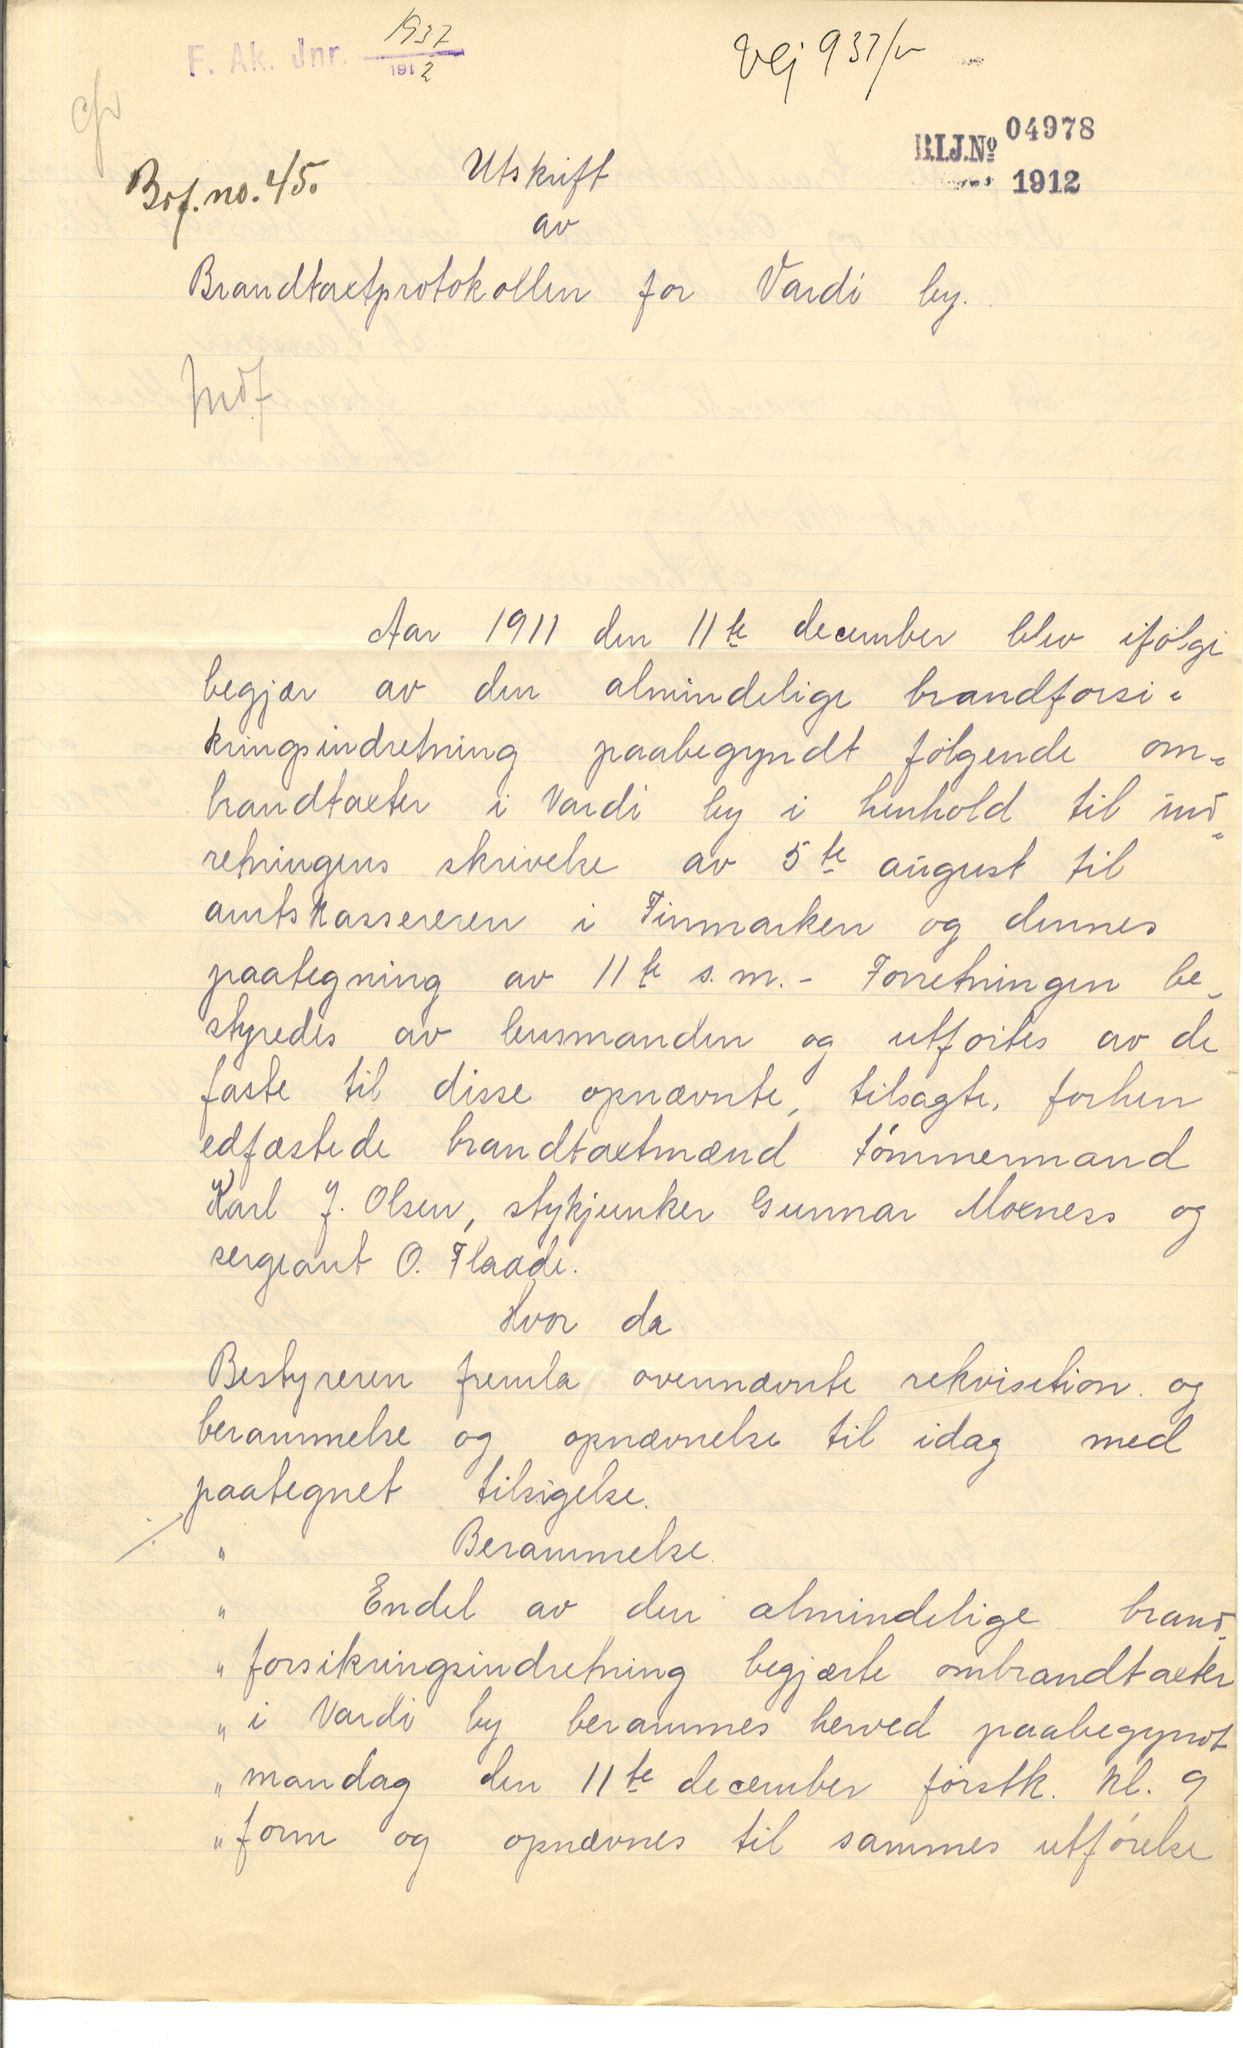 F. Ak. Jnr. 1937/1912
Vej 937/12
B.I.J.No 04978
1912
Brf. no. 45.
Utskrift
av
Brandtaxtprotokollen for Vardö by.
Indf
Aar 1911 den 11te december blev ifølge
begjær av den almindelige brandforsi-
kringsindretning paabegyndt følgende om-
brandtaxter i Vardö by i henhold til ind-
retningens skrivelse av 5te august til
amtskassereren i Finmarken og dennes
paategning av 11te s.m. - Forretningen be-
styredes av lensmanden og utførtes av de
faste til disse opnævnte, tilsagte, forhen
edfæstede brandtaxtmænd tømmermand
Karl J. Olsen, stykjunker Gunnar Moeness og
sergeant O. Flaade.
Hvor da
Bestyreren fremla ovennævnte rekvisition og
berammelse og opnævnelse til idag med
paategnet tilsigelse.
./. " Berammelse.
" Endel av den almindelige brand-
" forsikringsindretning begjærte ombrandtaxter
" i Vardö by berammes herved paabegyndt
" mandag den 11te december førstk. kl. 9
" form og opnævnes til sammes utførelse